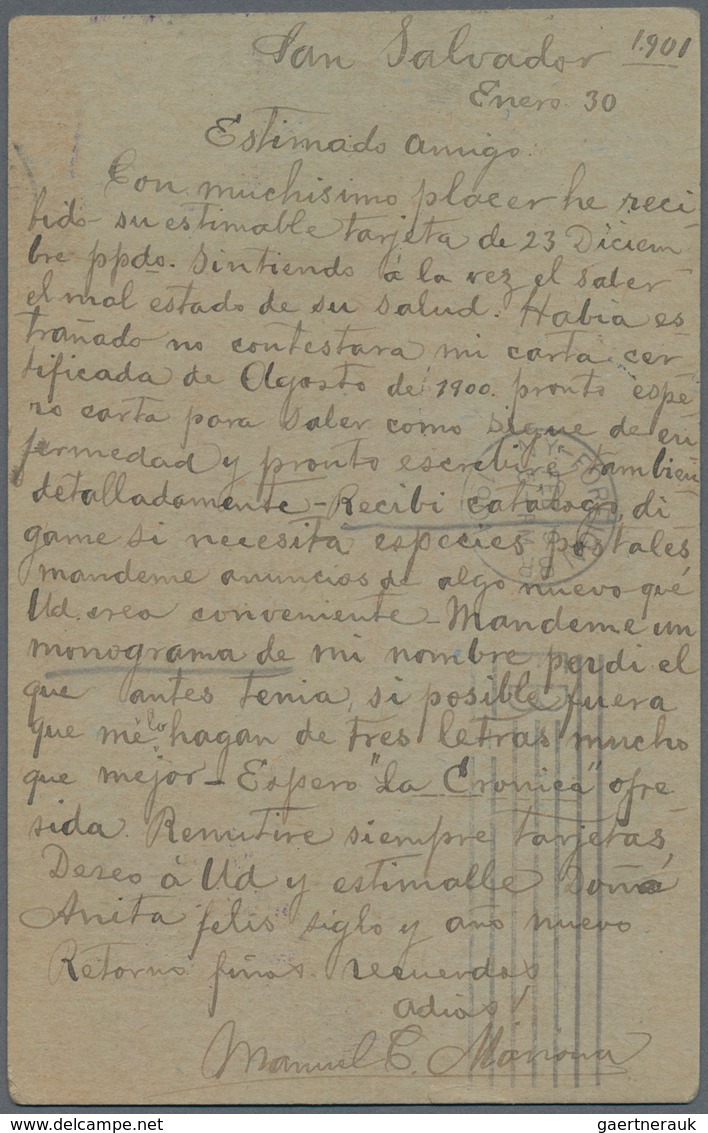 San Salvador 1901
Enero 30
Estimado amigo
Con muchisimo placer he reci
bido su estimable tarjeta de 23 Diciem
bre ppdo. Sintiendo á la vez el saber
el mal estado de su salud. Habia es
trañado no contestara mi carta cer
tificada de Agosto de 1900. pronto espe
ro carta para saber como sigue de en
fermedad y pronto escribire tambien
detalladamente - Recibi catálogo, di
game si necesita especies postales,
mandeme anuncios de algo nuevo que
Ud. crea conveniente - Mandeme un
monograma de mi nombre perdi el
que antes tenia, si posible fuera
que me lo hagan de tres letras mucho
que mejor - Espero "La Cronica" ofre
sida. Remitire siempre tarjetas,
Deseo á Ud y estimable Doña
Anita felis siglo y año nuevo
Retorno finos recuerdos
adios!
Manuel C.
N.Y. FOREIGN BR.
gaertnerauk